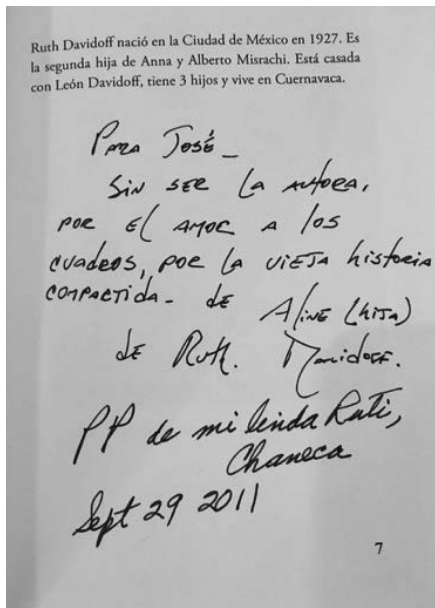 Ruth Davidoff nació en la Ciudad de México en 1927. Es
la segunda hija de Anna y Alberto Misrachi. Está casada
con León Davidoff, tiene 3 hijos y vive en Cuernavaca.
Para José_
Sin ser la autora,
por el amor a los
cuadros, por la vieja historia
compartida_ de Aline (hija)
de Ruth. Davidoff.
PP de mi linda Ruti,
Chaneca
Sept 29 2011
7